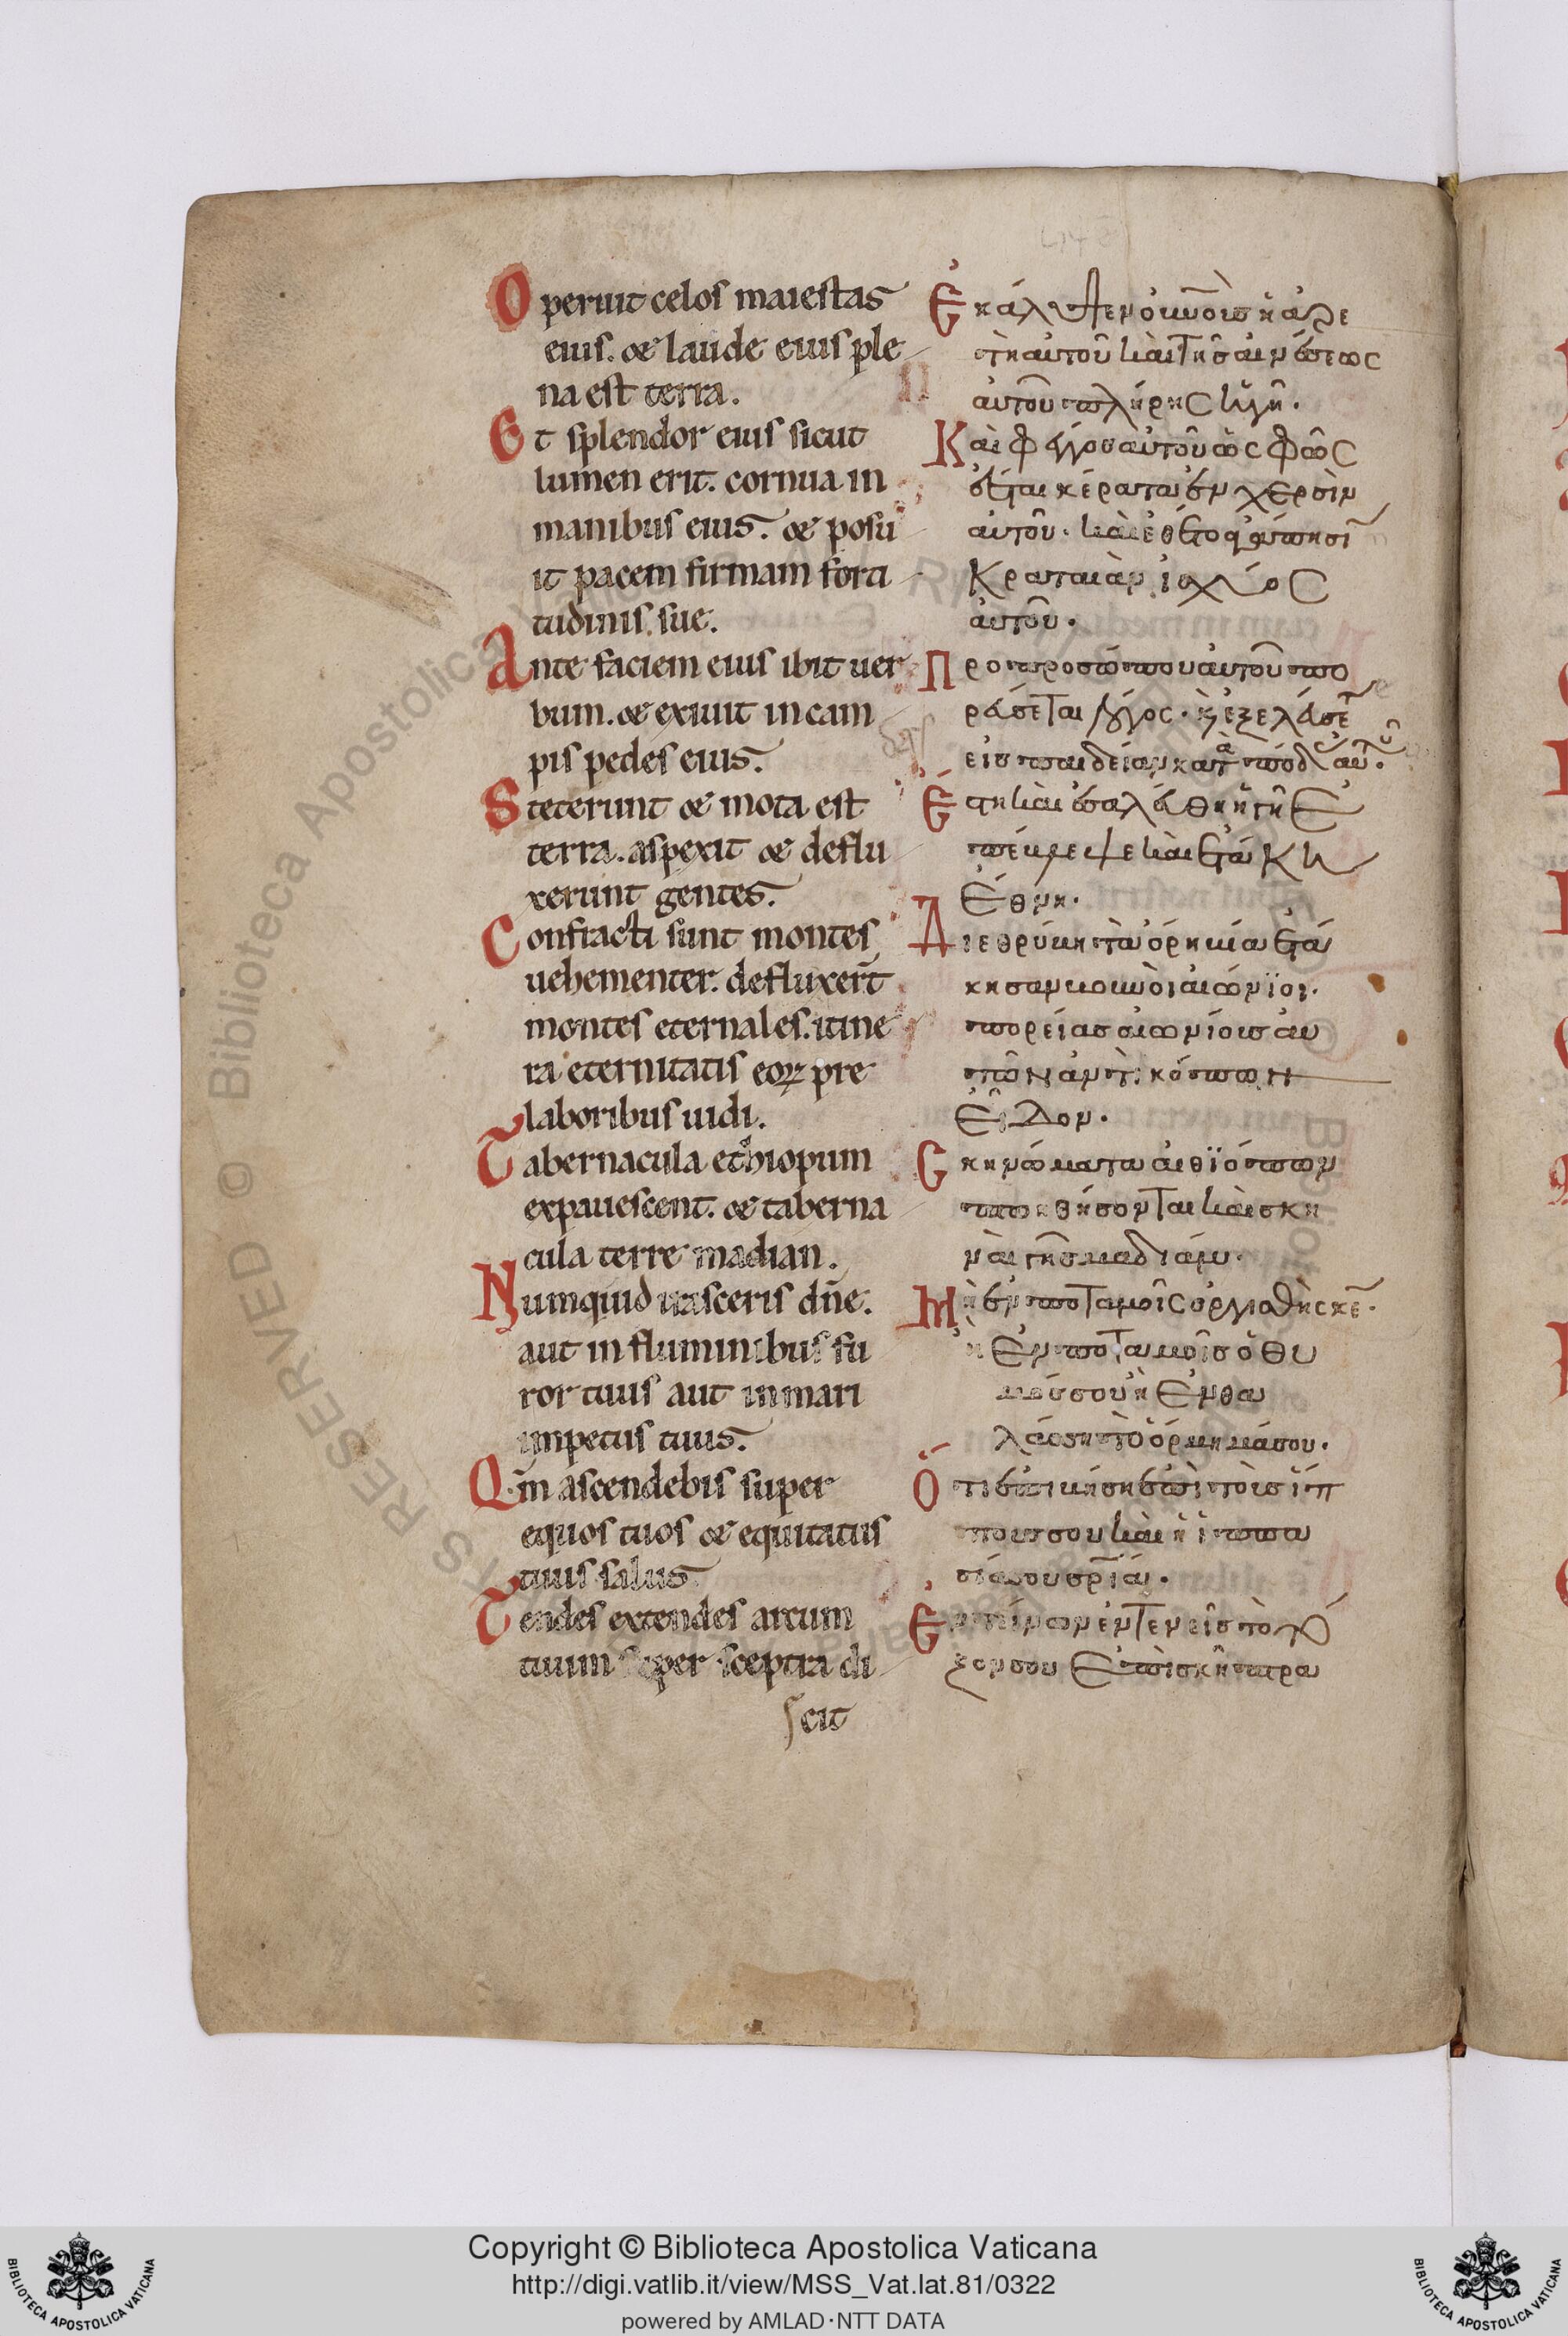 Operuit celos maiestas
eius. & laude eius ple
na est terra.
Et splendor eius sicut
lumen erit. cornua in
manibus eius. & posu
it pacem firmam forti
tudinis sue.
Ante faciem eius ibit uer
bum. & exiuit in cam
pis pedes eius.
Steterunt & mota est
terra. aspexit & deflu
xerunt gentes.
Confracti sunt montes
uehementer. defluxer̄t
montes eternales. itine
ra eternitatis eoꝝ pre
laboribus uidi.
Tabernacula ethiopum
expauescent. & taberna
cula terre madian.
Numquid irasceris dn̄e.
aut in fluminibus fu
ror tuus aut in mari
impetus tuus.
Qm̄ ascendebis super
equos tuos & equitatus
tuus salus
Tendes extendes arcum
tuum super sceptra di
scit
Ἐκάλυψεν οὐνοὺσ ἡ ἀρε
τὴ αὐτοῦ καὶ τῆσ αἰνέσεως
αὐτοῦ πλήρης ἡ γῆ.
Καὶ φέγγοσ αὐτοῦ ὡς φῶς
ἔσται κέρατα ἐν χερσὶν
αὐτοῦ. καὶ ἔθετο
Κραταιὰν ἰσχύος
αὐτοῦ.
Προ προσώπου αὐτοῦ πο
ρεύσεται λόγος. κ̀ ἐξελεύσετ
εἰσ παιδείαν κατὰ πόδ αὐτ.
Ἔστη καὶ ἐσαλεύθη ἡ γῆ ἐ
πέβλεψε καὶ ἐτάκη
ἔθνη.
Διεθρύβη τὰ ὄρη βία ἐτά
κησαν βουνὸι αἰώνϊοι.
πορείασ αἰωνίουσ αυ
τῶν ἀντὶ κόπων
Εἶδον.
Σκηνώματα αἰθϊόπων
πτοηθήσονται καὶ αἱ σκη
ναὶ γῆσ μαδιάμ.
Μὴ ἐν ποταμοῖς ὀργισθῆς κε̄.
ἢ ἐν ποταμοῖσ ὁ θυ
μόσ σου ἢ ἐν θα
λάσση τὸ ὅρμημά σου.
Ὅτι ἐπιβήση ἐπὶ τοὺσ ἵπ
πουσ σου καὶ ἡ ἱππα
σία σου σρ̄ία.
Ἐντείνων ἐντενεῖσ τὸ τό
ξον σου ἐπὶ σκῆπτρα
Copyright © Biblioteca Apostolica Vaticana
http://digi.vatlib.it/view/MSS_Vat.lat.81/0322
powered by AMLAD·NTT DATA